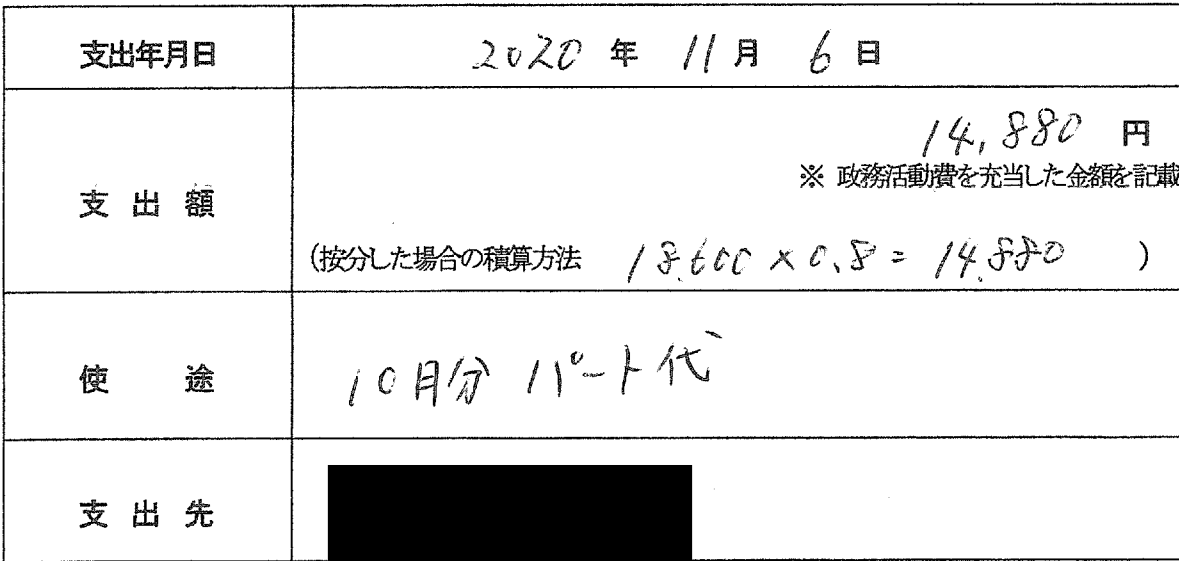 支出年月日 2020 年 11 月 6 日
14,880 円
※ 政務活動費を充当した金額を記載
支 出 額
(按分した場合の積算方法 18,600 × 0.8 = 14,880 )
使 途 10月分 パート代
支 出 先